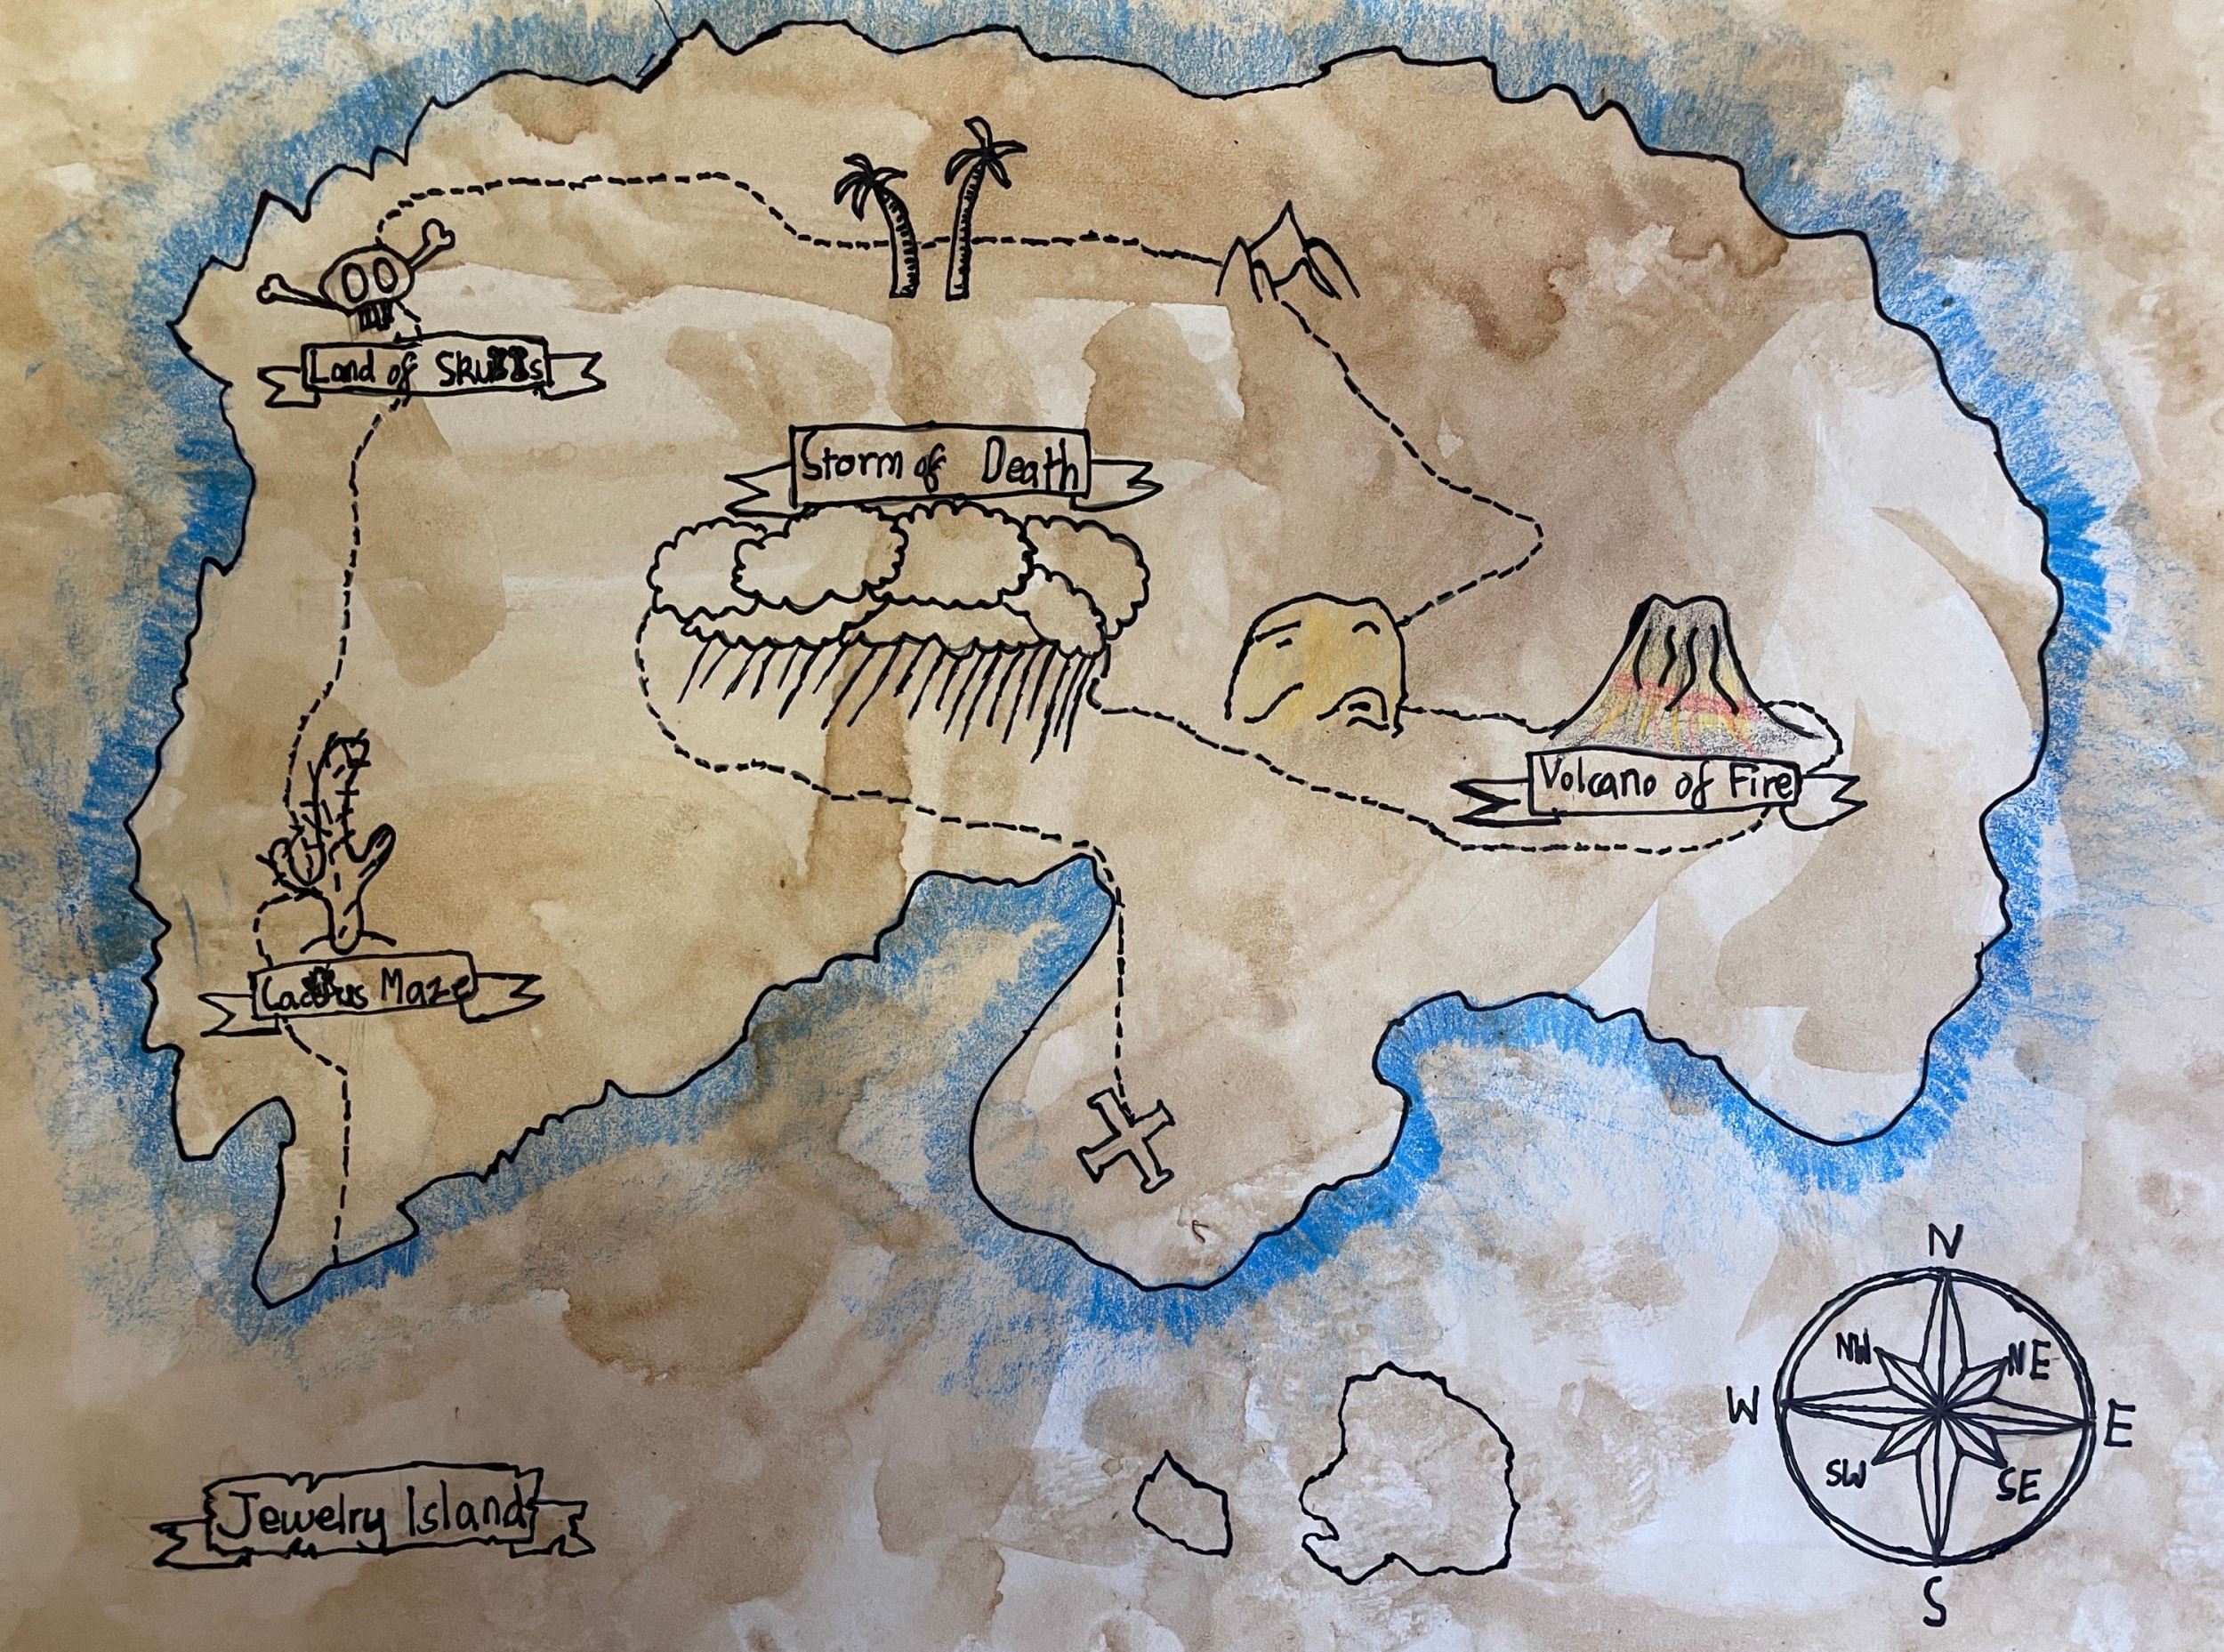 Land of Skulls
Storm of Death
Volcano of Fire
Cactus Maze
N
NW NE
W E
SW SE
S
Jewelry Island